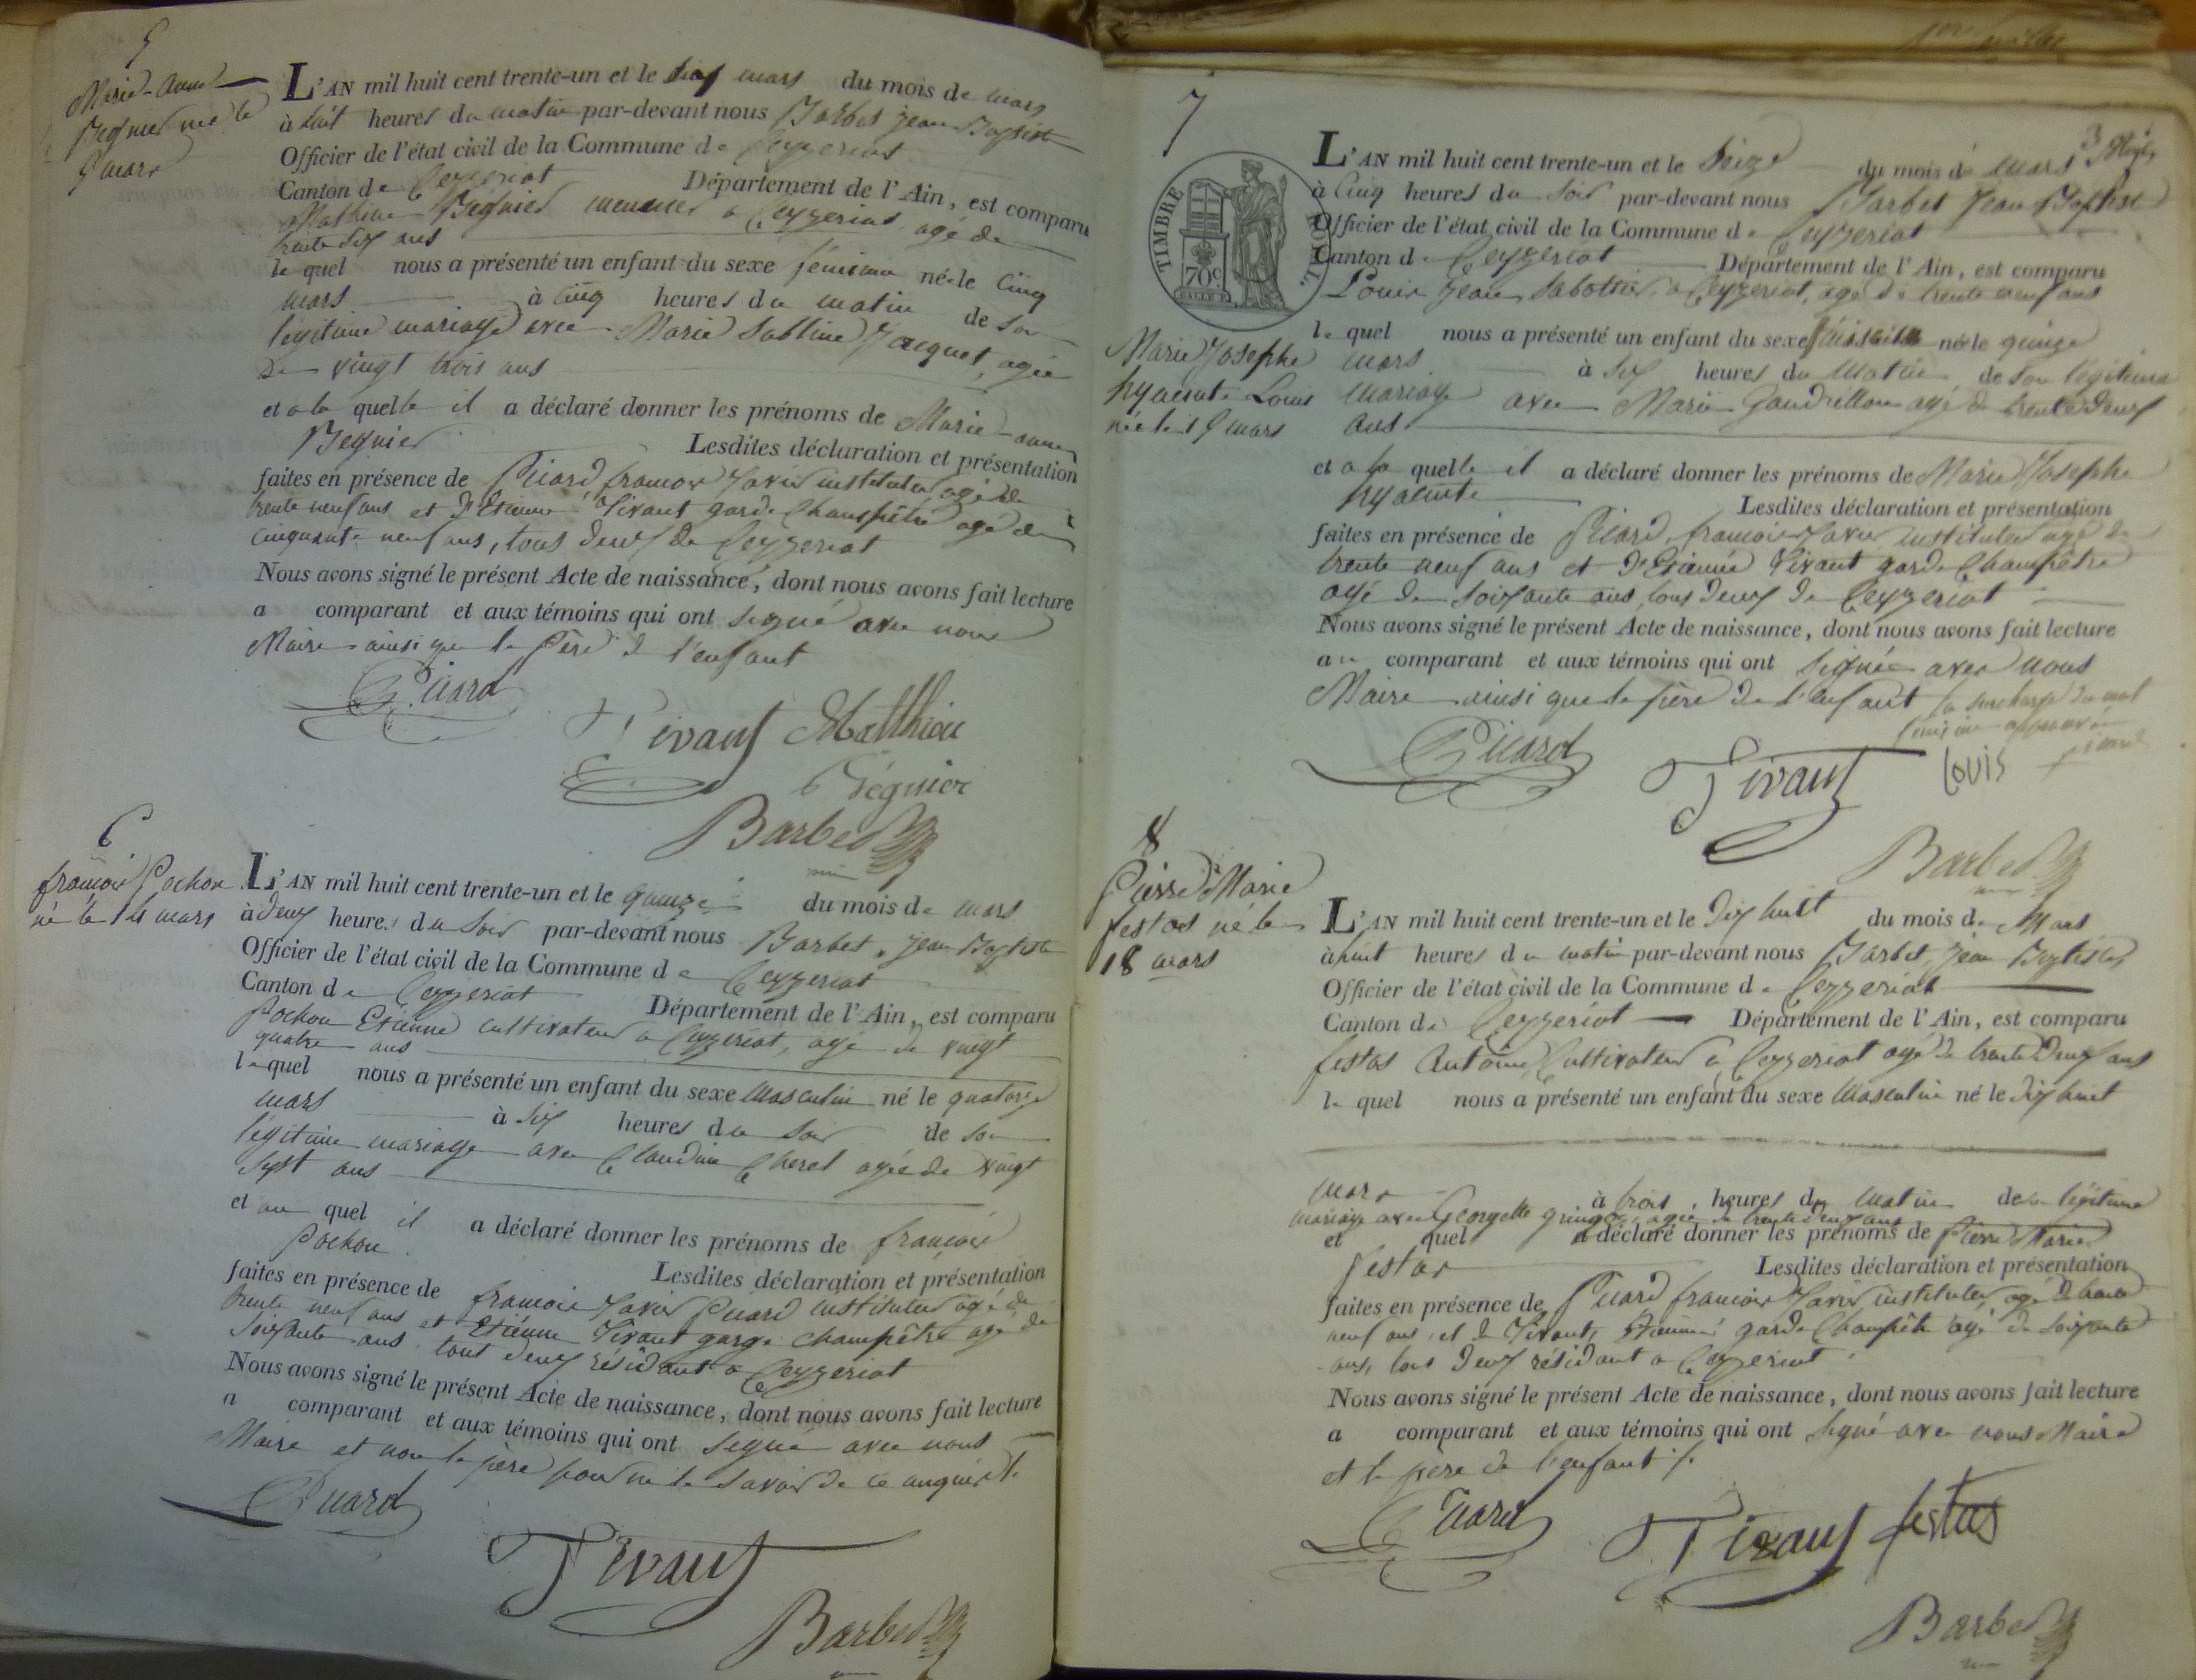 5
Marie-anne
Regnier née le
5 mars
L'AN mil huit cent trente-un et le six mars du mois de mars
à huit heures du matin par-devant nous Barbet jean Baptiste
Officier de l'état civil de la Commune de Ceyzeriat
Canton de Ceyzeriat Département de l'Ain, est comparu
Mathieu Regnier menuisier a Ceyzeriat, agé de
trente six ans
le quel nous a présenté un enfant du sexe feminin né le cinq
mars à cinq heures du matin de son
légitime mariage avec Marie Jacquet, agée
de vingt trois ans
et a la quelle il a déclaré donner les prénoms de Marie-anne
Regnier Lesdites déclaration et présentation
faites en présence de Picard francois Xavier instituteur agé de
trente neuf ans et d'Etienne Tivant garde Champêtre agé de
cinquante neuf ans, tous deux de Ceyzeriat
Nous avons signé le présent Acte de naissance, dont nous avons fait lecture
a comparant et aux témoins qui ont signé avec nous
Maire ainsi que le Père de l'enfant
Picard
Tivant Matthieu
Régnier
Barbet
6
francois Pochon
né le 14 mars
L'AN mil huit cent trente-un et le quinze du mois de mars
à deux heures du soir par-devant nous Barbet, jean Baptiste
Officier de l'état civil de la Commune de Ceyzeriat
Canton de Ceyzeriat Département de l'Ain, est comparu
Pochon Etienne cultivateur a Ceyzeriat, agé de vingt
quatre ans
le quel nous a présenté un enfant du sexe masculin né le quatorze
mars à six heures du soir de son
légitime mariage avec Claudine Cheret agée de vingt
sept ans
et au quel il a déclaré donner les prénoms de francois
Pochon Lesdites déclaration et présentation
faites en présence de francois Xavier Picard instituteur agé de
trente neuf ans et Etienne Tivant garge champêtre agé de
soixante ans tout deux résidant a Ceyzeriat
Nous avons signé le présent Acte de naissance, dont nous avons fait lecture
a comparant et aux témoins qui ont signé avec nous
Maire et non le père pour ne le savoir de ce enquis
Picard
Tivant
Barbet
7
TIMBRE ROYAL
70c
L'AN mil huit cent trente-un et le seize du mois de mars
à cinq heures du soir par-devant nous Barbet Jean Baptiste
Officier de l'état civil de la Commune de Ceyzeriat
Canton de Ceyzeriat Département de l'Ain, est comparu
Louis Jean sabotier a Ceyzeriat, agé de trente neuf ans
Marie Josephe
hyacinte Louis
née le 15 mars
le quel nous a présenté un enfant du sexe féminin né le quinze
mars à six heures du matin de son légitime
mariage avec Marie Gaudillon agé de trente deux
ans
et a la quelle il a déclaré donner les prénoms de Marie Josephe
hyacinte Lesdites déclaration et présentation
faites en présence de Picard, francois Xavier instituteur agé de
trente neuf ans et d'Etienne Tivant garde Champêtre
agé de soixante ans, tous deux de Ceyzeriat
Nous avons signé le présent Acte de naissance, dont nous avons fait lecture
au comparant et aux témoins qui ont signé avec nous
Maire ainsi que le père de l'enfant la surcharge du mot
feminin approuvée
Picard
Tivant Louis
Barbet
8
Pierre Marie
festas né le
18 mars
L'AN mil huit cent trente-un et le dix huit du mois de Mars
à huit heures du matin par-devant nous Barbet, jean Baptiste,
Officier de l'état civil de la Commune de Ceyzeriat
Canton de Ceyzeriat Département de l'Ain, est comparu
festas Antoine Cultivateur à Ceyzeriat agé de trente deux ans
le quel nous a présenté un enfant du sexe masculin né le dix huit
mars à trois heures du matin de son légitime
mariage avec Georgette agée de trente deux ans
et quel a déclaré donner les prénoms de Pierre Marie
festas Lesdites déclaration et présentation
faites en présence de Picard francois Xavier, instituteur agé de trente
neuf ans, et de Tivant, Etienne garde Champêtre agé de soixante
ans, tous deux résidant a Ceyzeriat
Nous avons signé le présent Acte de naissance, dont nous avons fait lecture
a comparant et aux témoins qui ont signé avec nous Maire
et le père de l'enfant
Picard
Tivant festas
Barbet